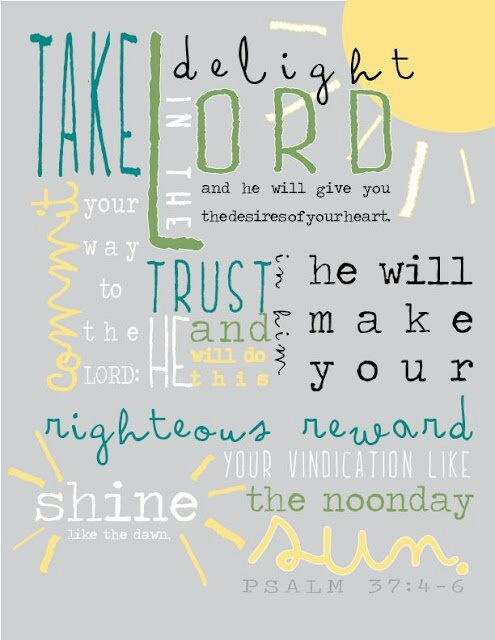 TAKE delight
IN THE
LORD
and he will give you
thedesiresofyourheart.
commit
your
way
to
the
LORD:
TRUST
in him
HE
and
will do
this
he will
make
your
righteous reward
shine
like the dawn.
YOUR VINDICATION LIKE
the noonday
sun.
PSALM 37:4-6